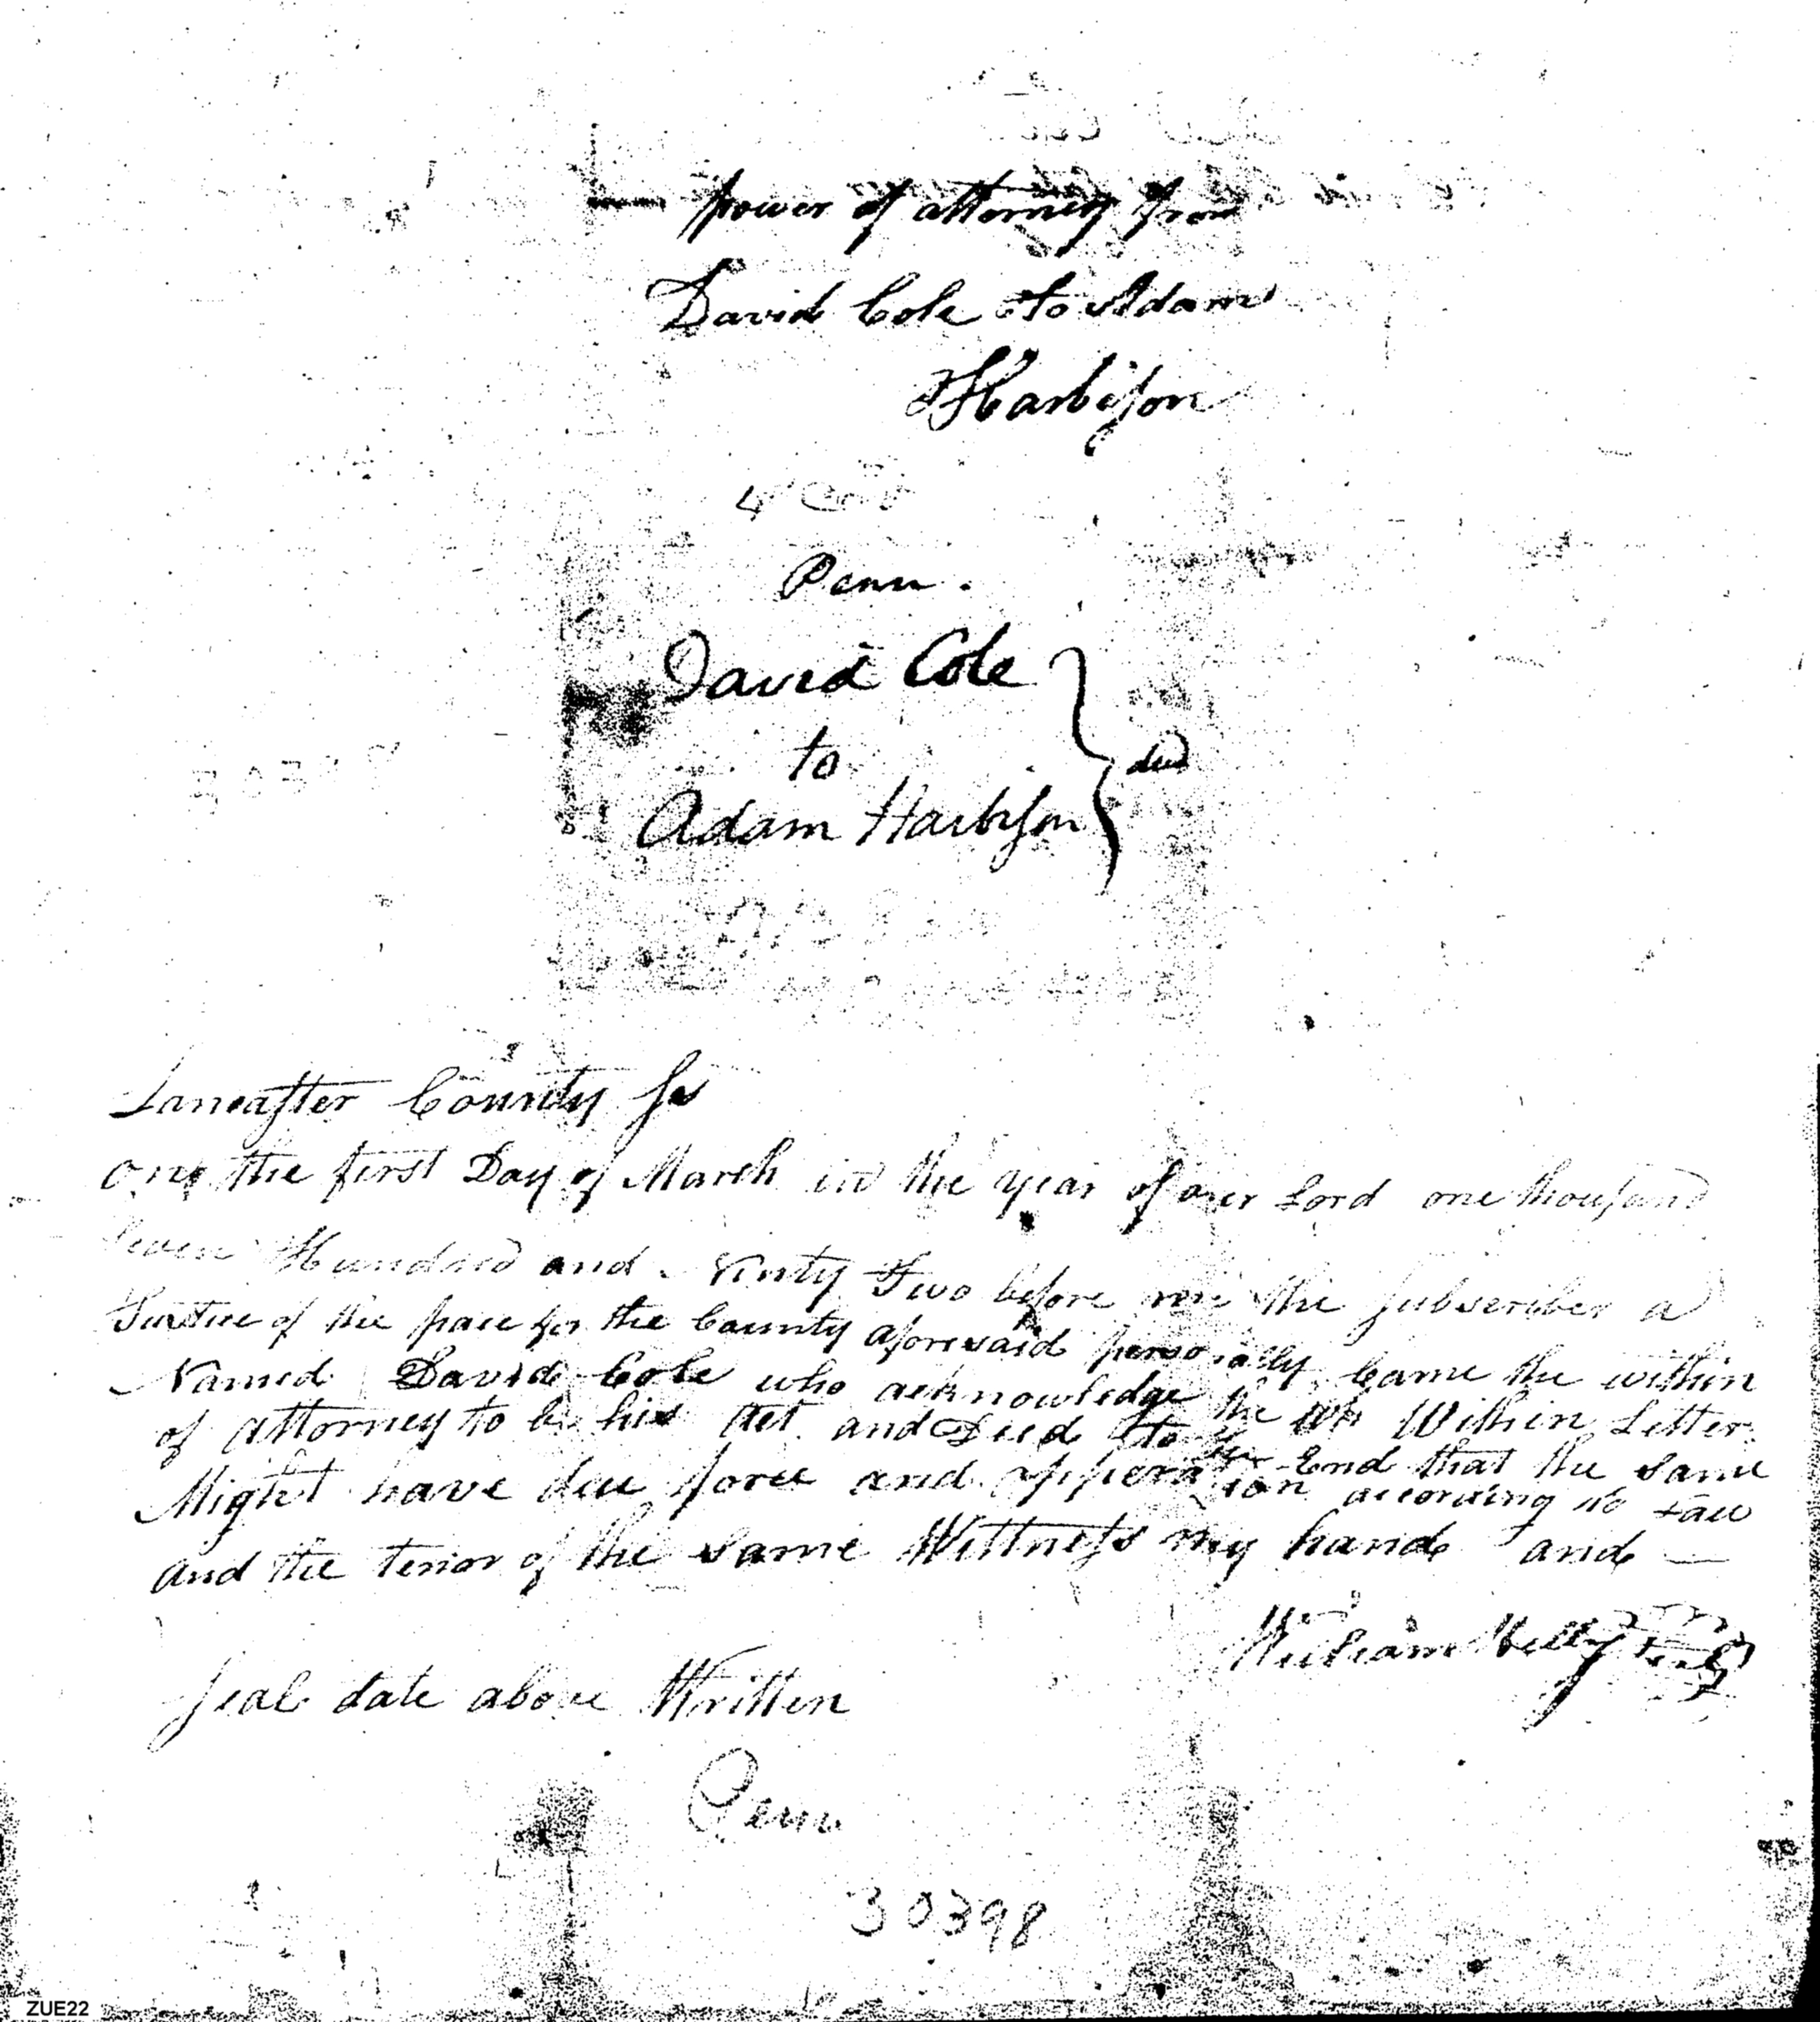 power of attorney from
David Cole to Adam
Harbison
Penn.
David Cole
to
Adam Harbison
Lancaster County ss
on the first Day of March in the year of our Lord one thousand
seven Hundred and Ninty Two before me the subscriber a
Justice of the pace for the County aforesaid personally Came the within
Named David Cole who acknowledge the Within Letter
of attorney to be his Act and Deed to the End that the same
Might have due force and opperation according to Law
and the tenor of the same Wittness my hand and —
William
seal date above Written
Penn
30398
ZUE22